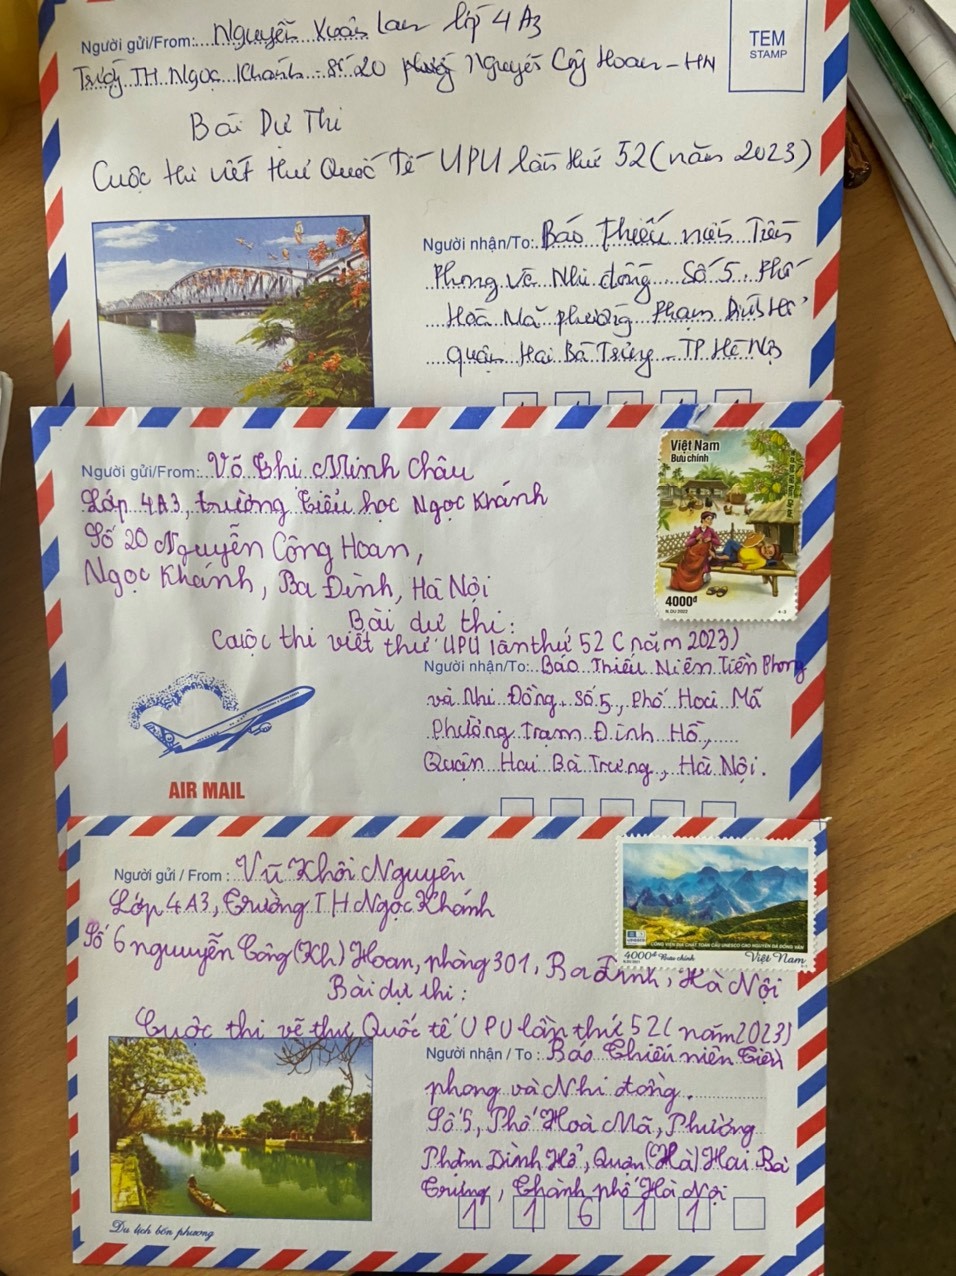 Người gửi/From: Nguyễn Xuân Lan lớp 4A3
Trường TH Ngọc Khánh Số 20 Nguyễn Công Hoan - HN
TEM
STAMP
Bài Dự Thi
Cuộc thi viết thư Quốc Tế UPU lần thứ 52 (năm 2023)
Người nhận/To: Báo thiếu niên Tiền
Phong và Nhi đồng Số 5 Phố
Hoà Mã phường Phạm Đình Hổ
quận Hai Bà Trưng TP Hà Nội
Người gửi/From: Võ Chi Minh Châu
Lớp 4A3, trường Tiểu học Ngọc Khánh
Số 20 Nguyễn Công Hoan,
Ngọc Khánh, Ba Đình, Hà Nội
Việt Nam
Bưu chính
4000đ
Bài dự thi:
Cuộc thi viết thư UPU lần thứ 52 (năm 2023)
Người nhận/To: Báo Thiếu Niên Tiền Phong
và Nhi Đồng, Số 5, Phố Hoà Mã
Phường Trạm Đình Hổ,
Quận Hai Bà Trưng, Hà Nội.
AIR MAIL
Người gửi / From : Vũ Khôi Nguyên
Lớp 4A3, Trường T.H Ngọc Khánh
Số 6 nguyễn Công (Kh) Hoan, phòng 301, Ba Đình, Hà Nội
CÔNG VIÊN ĐỊA CHẤT TOÀN CẦU UNESCO CAO NGUYÊN ĐÁ ĐỒNG VĂN
4000đ Bưu chính Việt Nam
Bài dự thi:
Cuộc thi vẽ thư Quốc tế UPU lần thứ 52 (năm 2023)
Người nhận / To : Báo Thiếu niên Tiền
phong và Nhi đồng.
Số 5, Phố Hoà Mã, Phường
Phạm Đình Hổ, Quận (Hà) Hai Bà
Trưng, Thành phố Hà Nội
1 1 6 1 1
Du lịch bốn phương